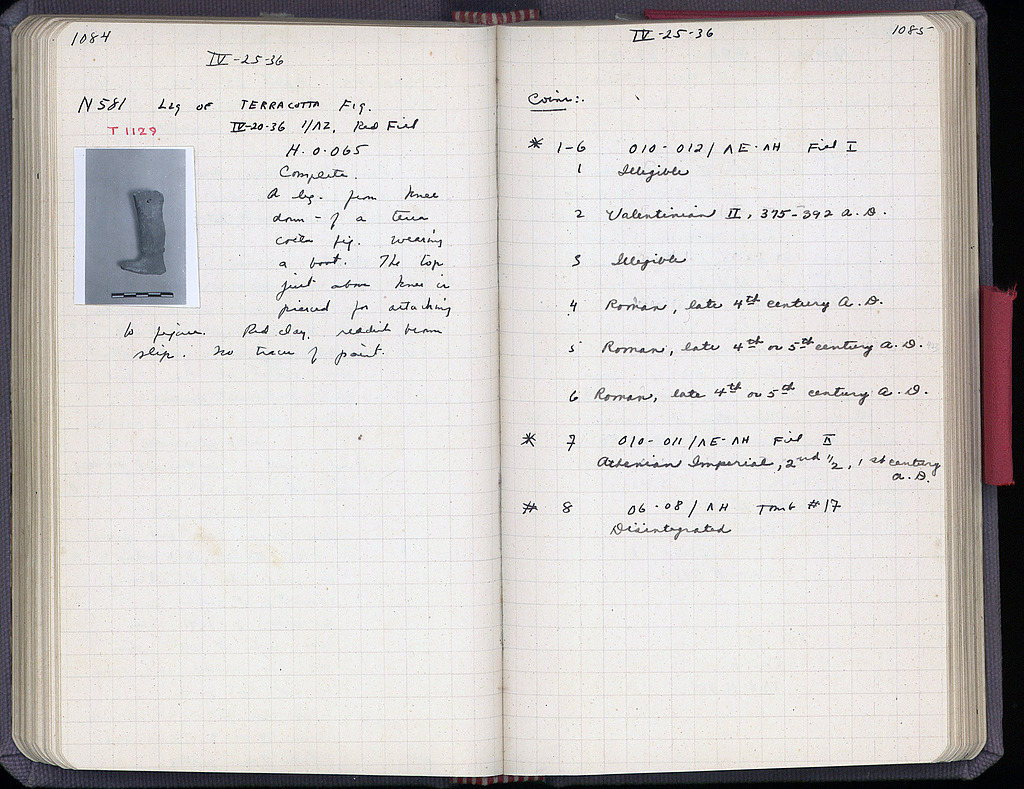 1084
IV-25-36
N 581 Leg of TERRACOTTA Fig.
T 1129
IV-20-36 1/ΛZ, Red Fill
H. 0.065
Complete.
A leg. from knee
down - of a terra
cotta fig. wearing
a boot. The top
just above knee is
pierced for attaching
to figure. Red clay, reddish brown
slip. No traces of paint.
IV-25-36
1085
Coins:
* 1-6 010-012/ΛE-ΛH Fill I
1 Illegible
2 Valentinian II, 375-392 A.D.
3 Illegible
4 Roman, late 4th century A.D.
5 Roman, late 4th or 5th century A.D.
6 Roman, late 4th or 5th century A.D.
* 7 010-011/ΛE-ΛH Fill II
Athenian Imperial, 2nd 1/2, 1st century
A.D.
# 8 06-08/ΛH Tomb #17
Disintegrated